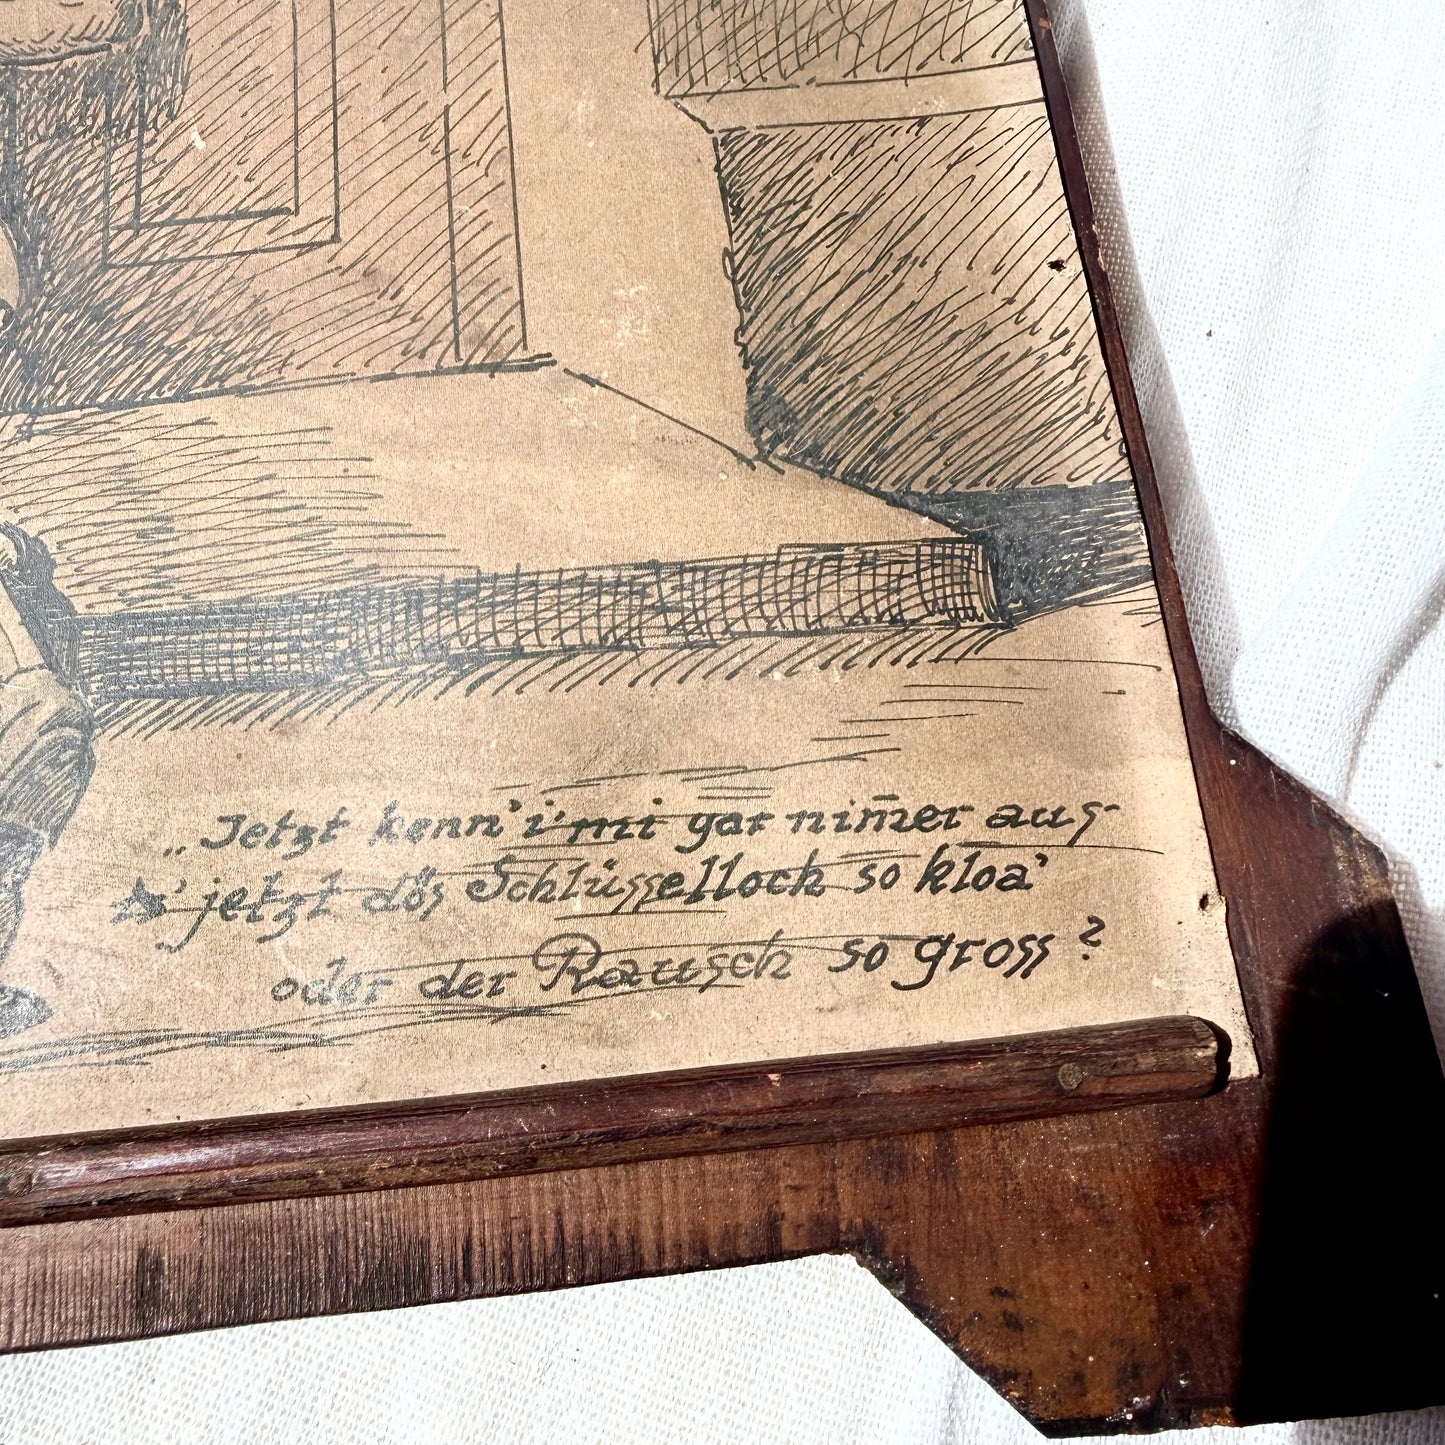 „Jetzt kenn' i' mi gar nim̄er aus-
is' jetzt dös Schlüsselloch so kloa'
oder der Rausch so gross?